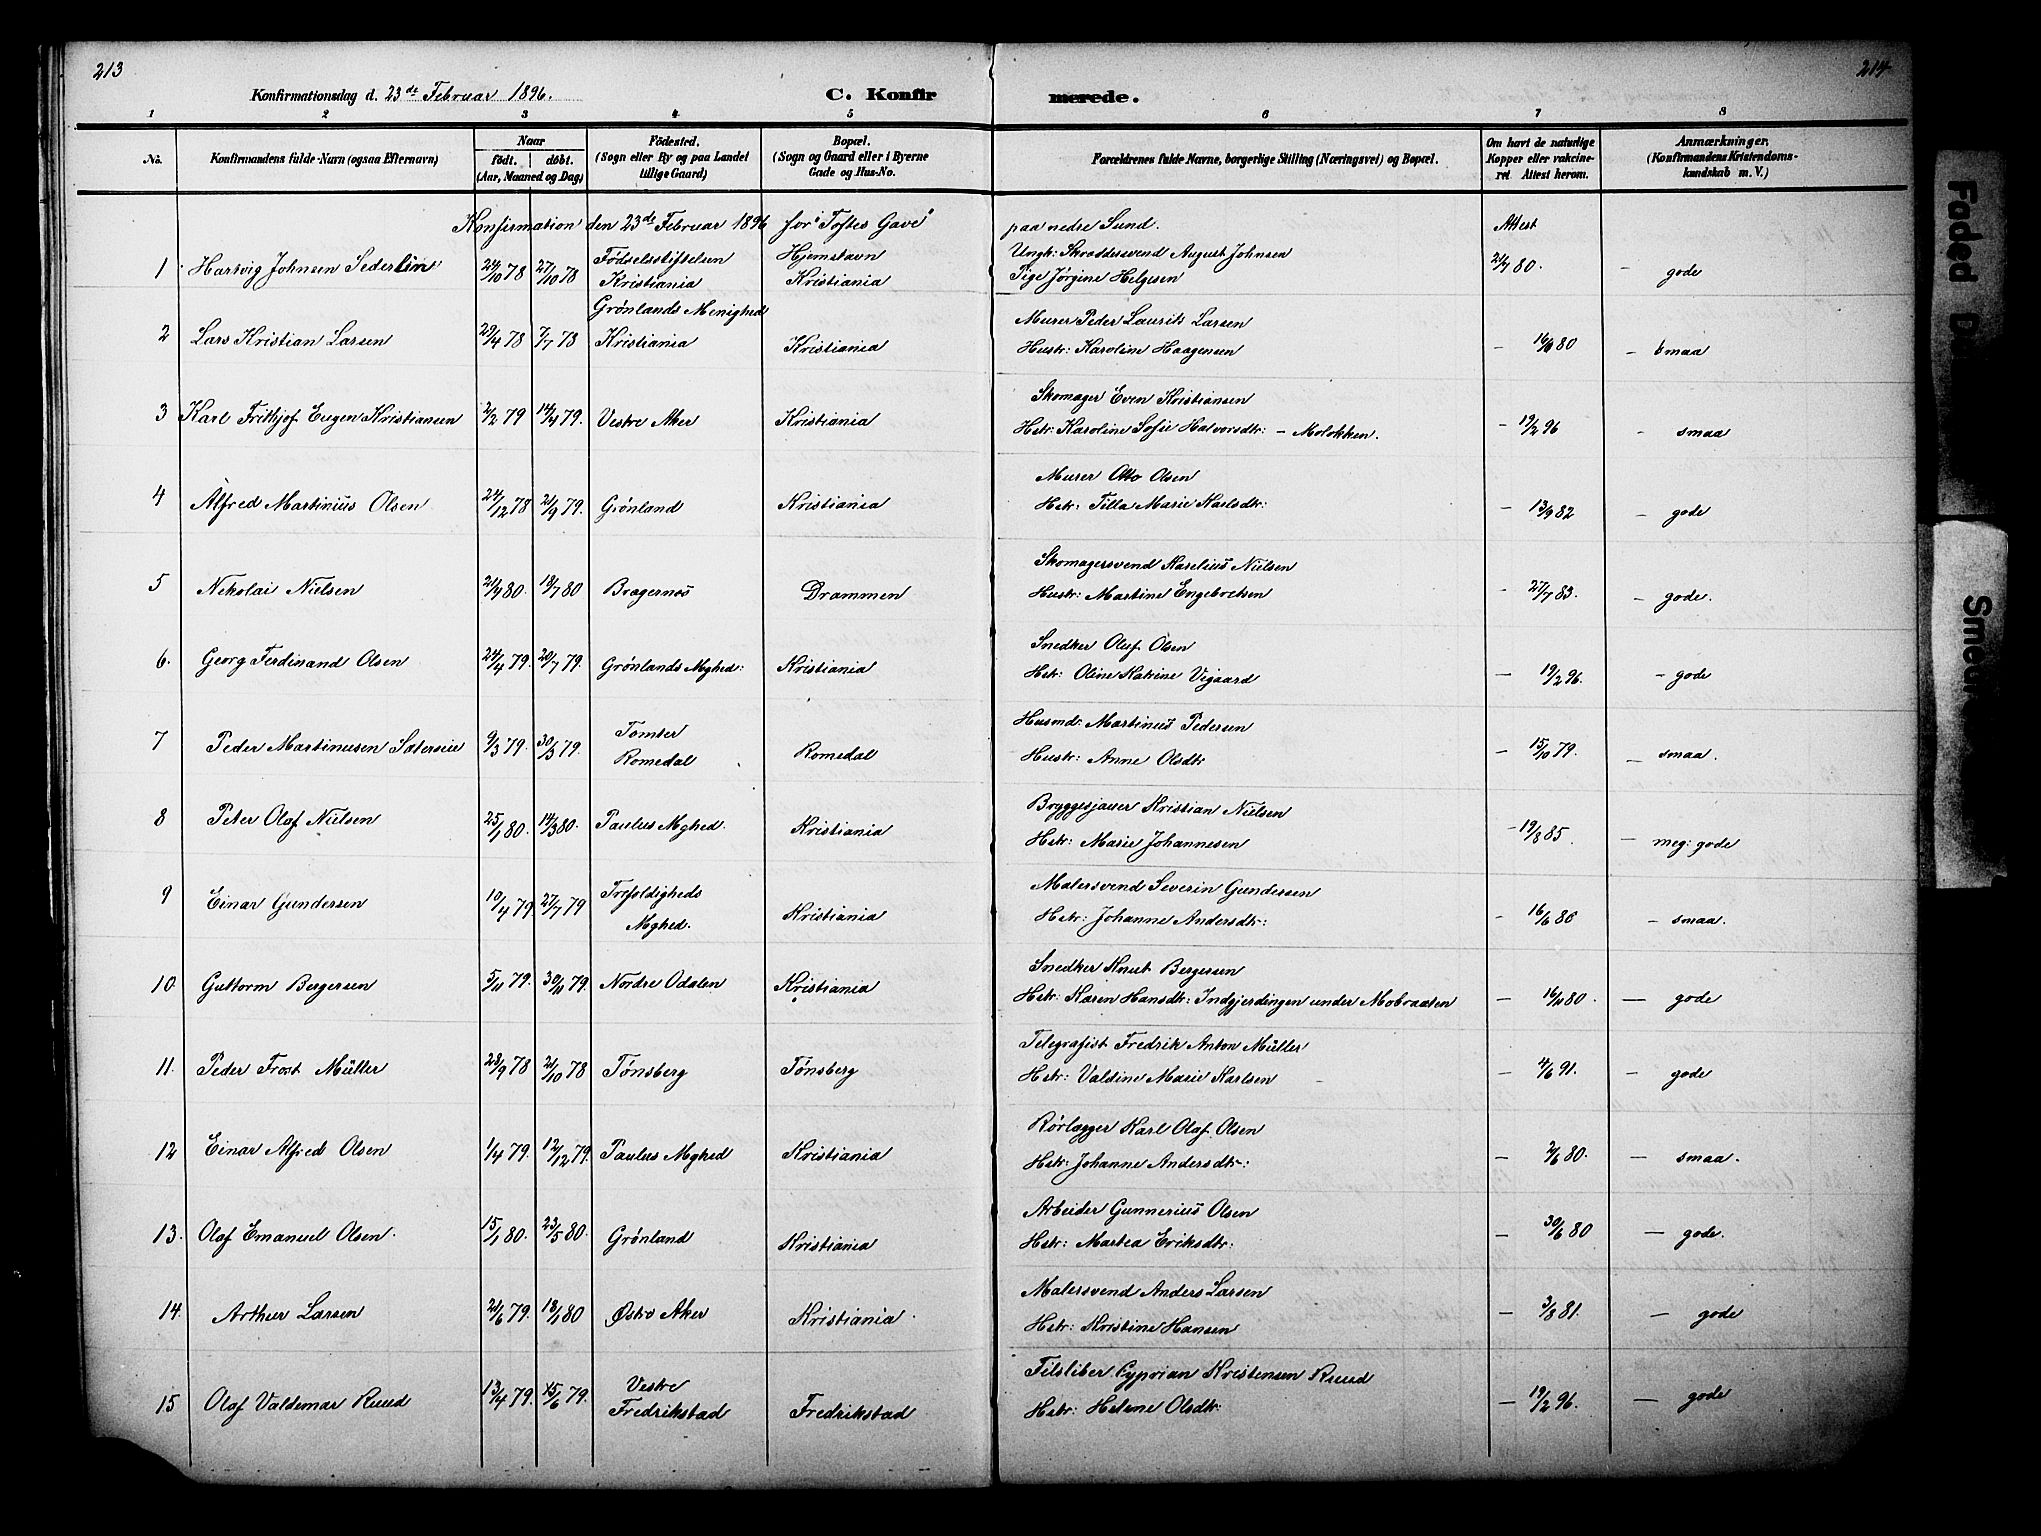 213
214
Konfirmationsdag d. 23de Februar 1896.
C. Konfirmerede.
1 2 3 4 5 6 7 8
No. Konfirmandens fulde Navn (ogsaa Efternavn) Naar født. døbt. (Aar, Maaned og Dag) Fødested. (Sogn eller By og paa Landet tillige Gaard) Bopæl. (Sogn og Gaard eller i Byerne Gade og Hus-No. Forældrenes fulde Navne, borgerlige Stilling (Næringsvei) og Bopæl. Om havt de naturlige Kopper eller vakcineret Attest herom. Anmærkninger. (Konfirmandens Kristendomskundskab m. V.)
Konfirmation den 23de Februar 1896 for "Toftes Gave" paa nedre Sund. Attest
Fødselsstiftelsen Hjemstavn Ungk: Skræddersvend August Johnsen
1 Hartvig Johnsen Sederlin 24/10 78 27/10 78 Kristiania Kristiania Pige Jørgine Helgesen 21/7 80. — gode
Grønlands Menighed Murer Peder Laurits Larsen
2 Lars Kristian Larsen 29/4 78 7/7 78 Kristiania Kristiania Hustr: Karoline Haagensen — 80 — smaa
Skomager Even Kristiansen
3 Karl Frithjof Eugen Kristiansen 2/2 79 14/4 79. Vestre Aker Kristiania Hstr: Karoline Sofie Halvorsdtr: — Molokken. — 19/2 96 — smaa
Murer Otto Olsen
4 Alfred Martinius Olsen 24/12 78 21/9 79. Grønland Kristiania Hstr: Tilla Marie Karlsdtr: — 13/9 82 — gode
Skomagersvend Karelius Nielsen
5 Nikolai Nielsen 80 18/7 80 Bragernæs Drammen Hustr: Martine Engebretsen — 27/7 83. — gode.
Snedker Oluf Olsen
6. Georg Ferdinand Olsen 24/4 79. 20/7 79. Grønlands Mghed: Kristiania Hstr: Oline Katrine Vigaard — 19/2 96. — gode
Tomter Husmd: Martinus Pedersen
7 Peder Martinusen Sæterseie 9/3 79. 30/3 79. Romedal Romedal Hustr: Anne Olsdtr — 15/10 79. — smaa.
Bryggesjauer Kristian Nielsen
8 Peter Olaf Nielsen 25/1 80. 14/3 80. Paulus Mghed. Kristiania Hstr: Marie Johannesen — 19/8 85. — meg: gode
Trefoldigheds Malersvend Severin Gundersen
9 Einar Gundersen 10/4 79 27/7 79 Mghed. Kristiania Hstr: Johanne Andersdtr: — 16/6 80 — smaa.
Snedker Knut Bergersen
10 Guttorm Bergersen 5/11 79. 30/11 79. Nordre Odalen Kristiania Hstr: Karen Hansdtr: Indgjerdingen under Mobraaten — 80. — gode
Telegrafist Fredrik Anton Müller
11. Peder Frost Müller 28/9 78 21/10 78 Tønsberg Tønsberg Hstr: Valdine Marie Karlsen — 4/6 91. — gode
Rørlægger Karl Olaf Olsen
12 Einar Alfred Olsen 1/4 79. 12/12 79. Paulus Mghed Kristiania Hstr: Johanne Andersdtr: — 2/6 80. — smaa.
Arbeider Gunnerius Olsen
13. Olaf Emanuel Olsen. 15/1 80. 23/5 80. Grønland Kristiania Hstr: Martea Eriksdtr: — 30/6 80 — gode.
Malersvend Anders Larsen
14. Arthur Larsen 21/6 79. 18/1 80 Østre Aker Kristiania. Hstr: Kristine Hansen — 3/8 81. — gode
Vestre Filsliber Cyprian Kristensen Ruud
15 Olaf Valdemar Ruud 13/4 79. 15/6 79. Fredrikstad Fredrikstad Hstr: Helene Olsdtr: — 19/2 96. — gode